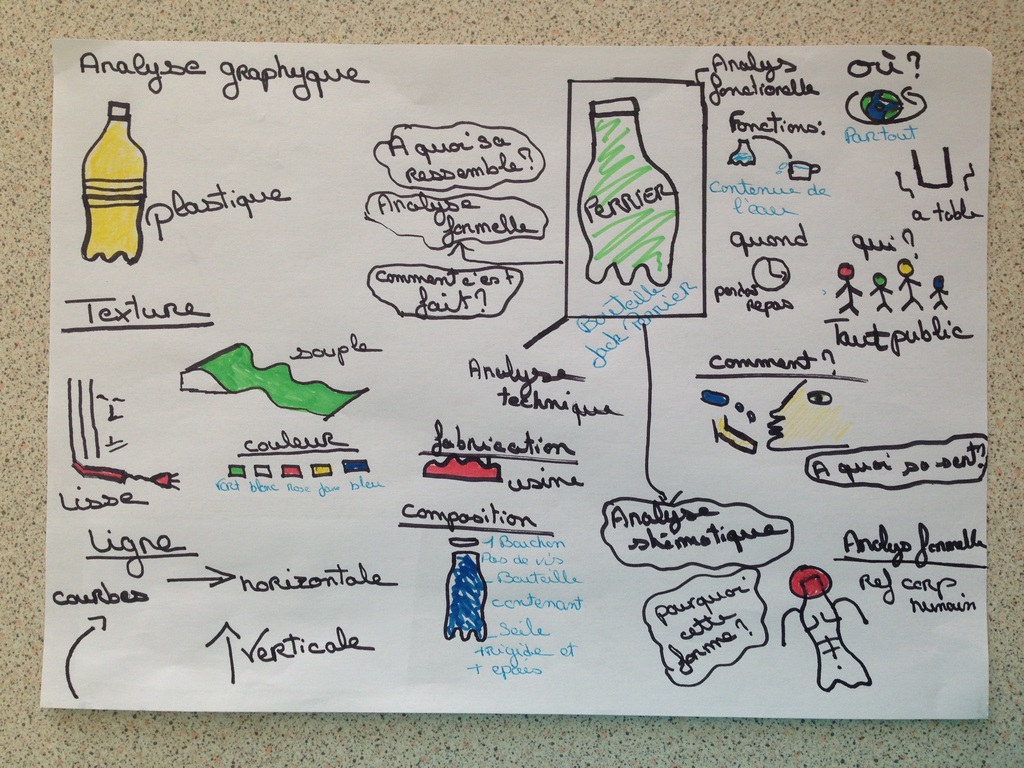 Analyse graphyque
plastique
Texture
souple
lisse
couleur
vert blanc rose jaune bleu
Ligne
courbes
horizontale
verticale
A quoi sa
ressemble?
Analyse
formelle
Comment c'est
fait?
PERRIER
Bouteille
Jack Perrier
Analyse
technique
fabriccation
usine
Composition
1 Bouchon
Pas de vis
Bouteille
contenant
+ rigide et
+ epais
Analys
fonctionelle
Fonctions:
Contenue de
l'eau
où?
Partout
a table
quand
repas
qui?
Tout public
comment?
A quoi so sert?
Analyse
shémotique
pourquoi
cette
forme?
Analys formelle
Ref corp
humain